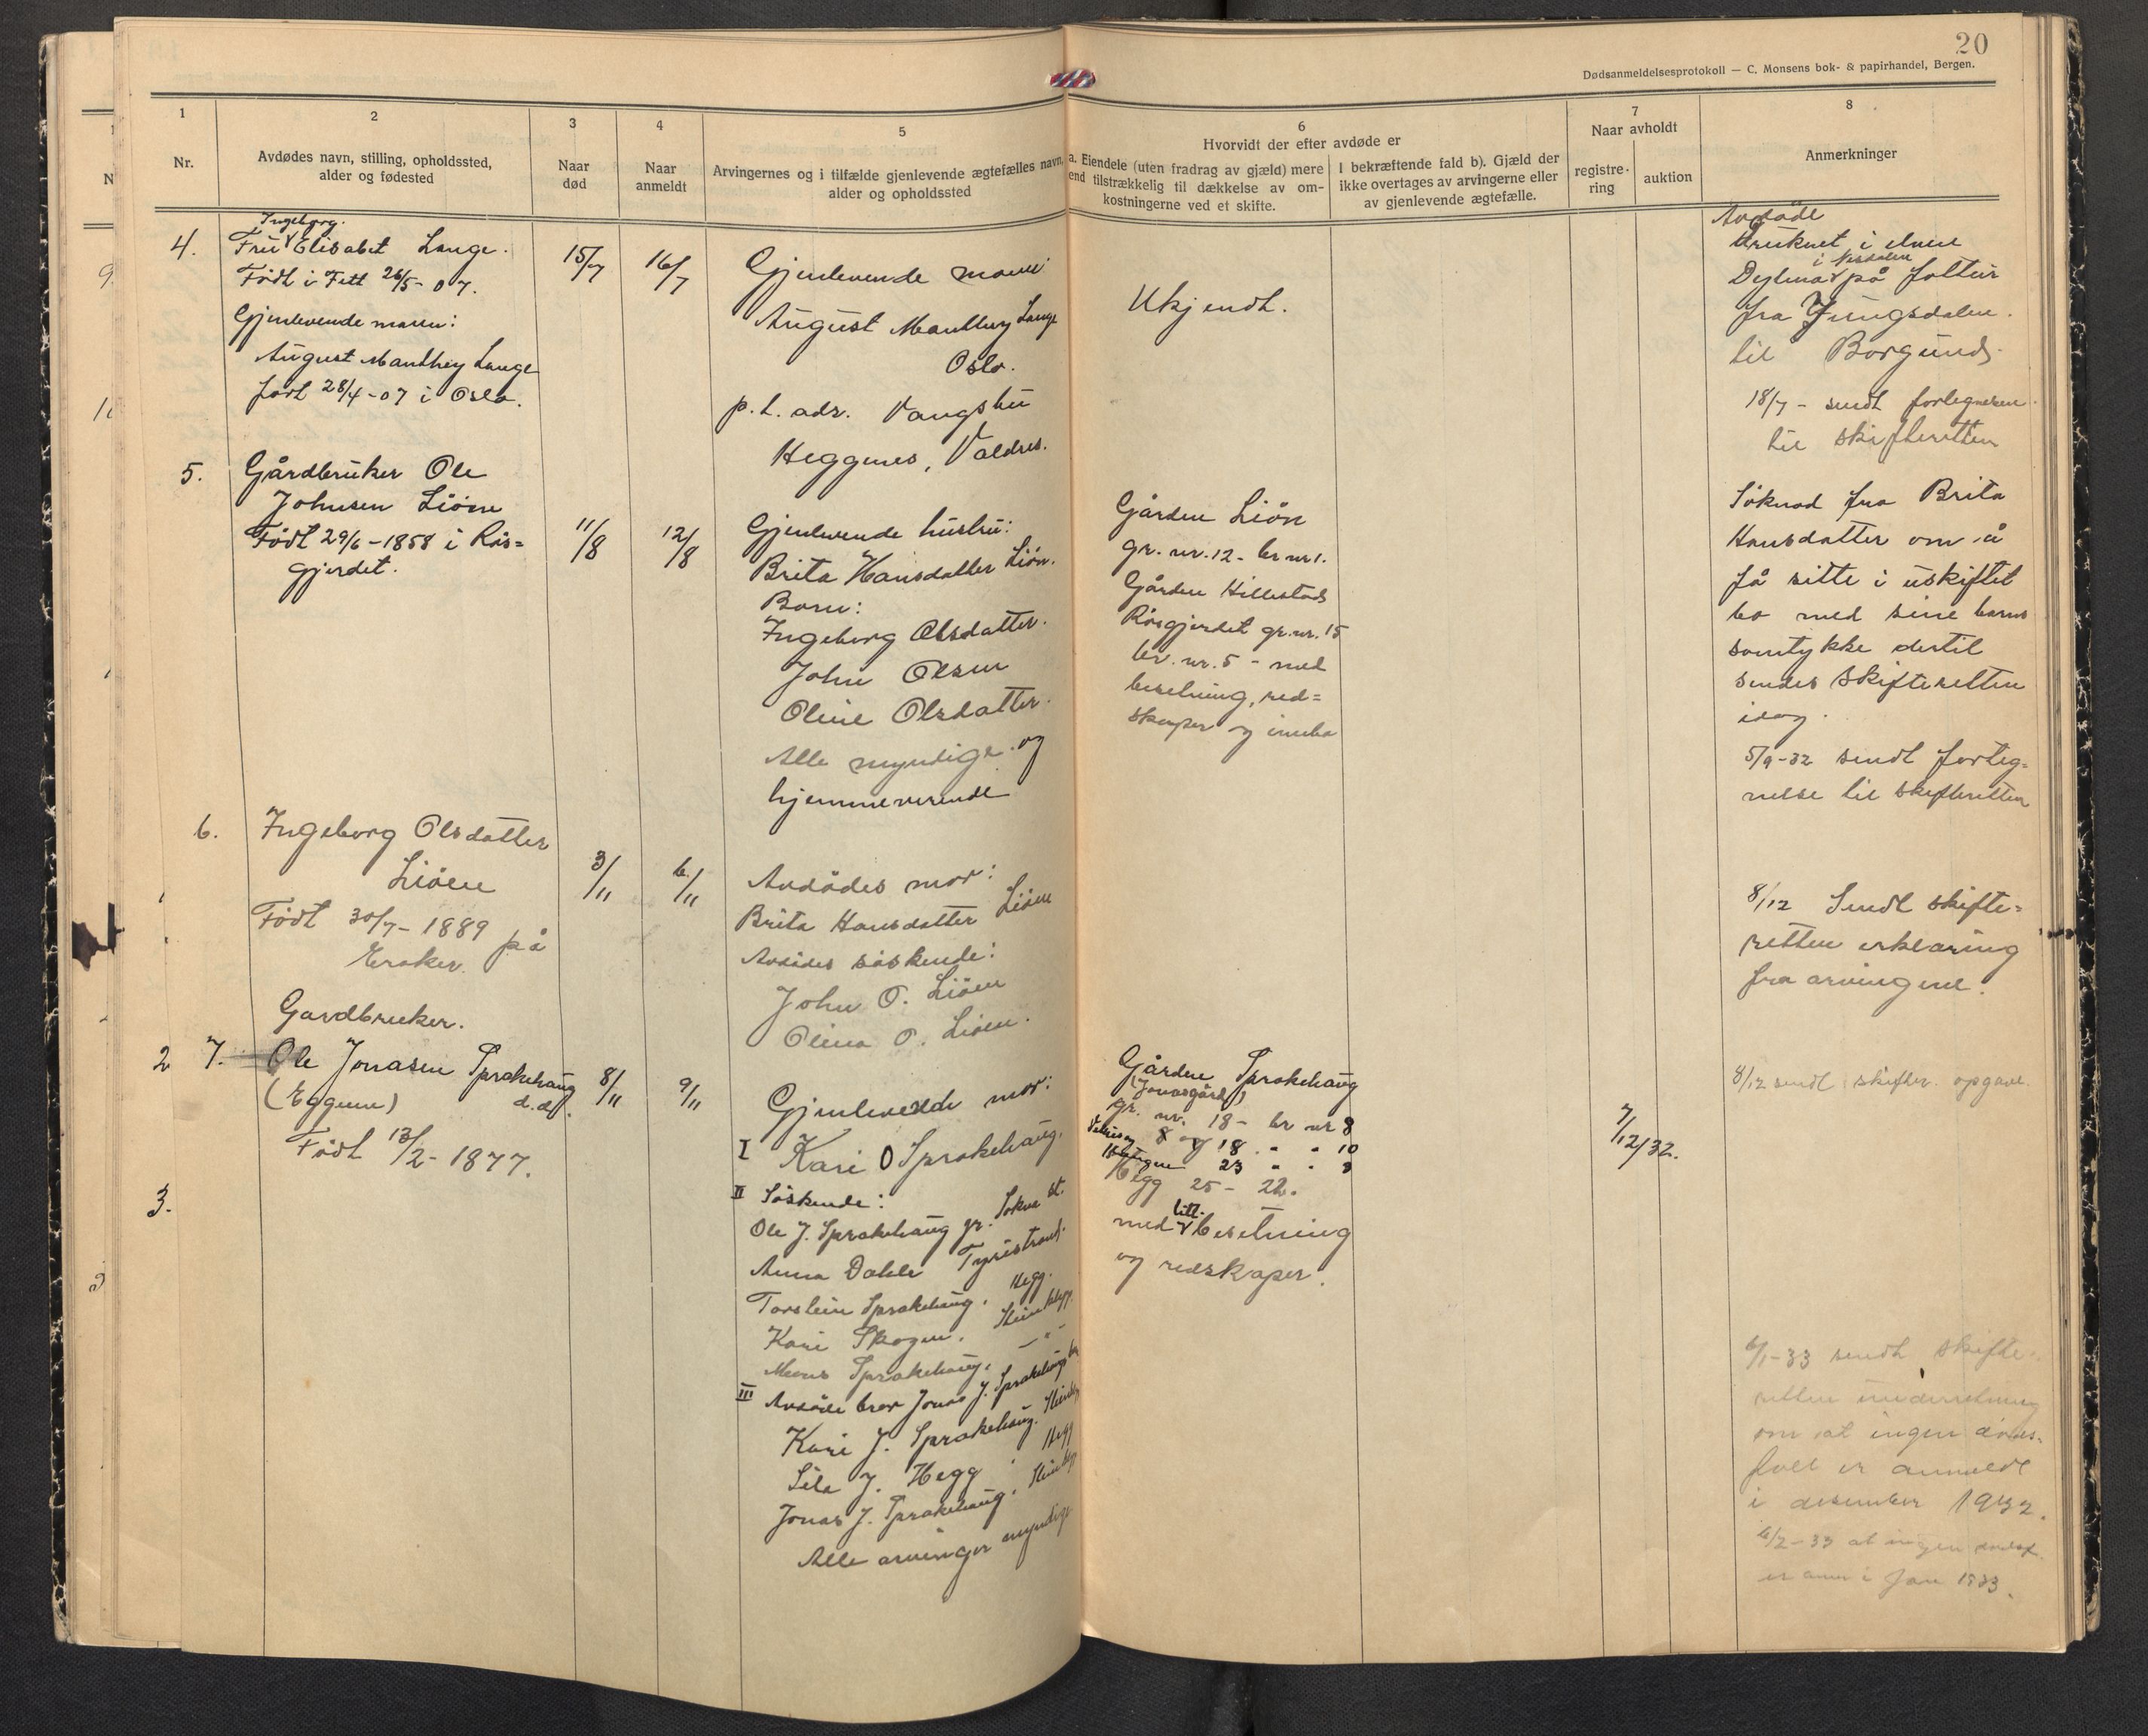 20
Dødsanmeldelsesprotokoll — C. Monsens bok- & papirhandel, Bergen.
1
Nr.
2
Avdødes navn, stilling, opholdssted,
alder og fødested
3
Naar
død
4
Naar
anmeldt
5
Arvingernes og i tilfælde gjenlevende ægtefælles navn,
alder og opholdssted
6
Hvorvidt der efter avdøde er
a. Eiendele (uten fradrag av gjæld) mere
end tilstrækkelig til dækkelse av om-
kostningerne ved et skifte.
I bekræftende fald b). Gjæld der
ikke overtages av arvingerne eller
av gjenlevende ægtefælle.
7
Naar avholdt
registre-
ring
auktion
8
Anmerkninger
4.
Ingeborg.
Fru Elisabet Lange.
Född i Fett 26/5-07.
Gjenlevende mann:
August Manthey Lange
född 28/4-07 i Oslo.
15/7
16/7
Gjenlevende mann
August Manthey Lange
Oslo.
p.t. adr. Vangstu
Heggenes, Valdres.
Ukjendt.
Avdöde
druknet i elven
på fottur
fra
til Borgund.
18/7 - sendt
til skifteretten
5.
Gårdbruker Ole
Johnsen Liöen
Född 29/6-1858 i Rös=
gjerdet.
11/8
12/8
Gjenlevende hustru:
Brita Hansdatter Liön.
Barn:
Ingeborg Olsdatter.
John Olsen
Oline Olsdatter.
Alle myndige og
hjemmeverende
Gården Liön
gr. nr. 12 - br nr 1.
Gården Hillestad
Rösgjerdet gr. nr. 15
br. nr. 5 - med
besetning, red=
skaper og innbo
Söknad fra Brita
Hansdatter om å
få sitte i uskiftet
bo med sine barns
samtykke dertil
sendes skifteretten
idag.
5/9-32 sendt forteg=
nelse til skifteretten
6.
Ingeborg Olsdatter
Liöen
Född 30/7-1889 på
Eraker.
3/11
6/11
Avdödes mor:
Brita Hansdatter Liöen
Avdödes söskende:
John O. Liöen
Olina O. Liöen.
8/12 Sendt skifte=
retten erklæring
fra arvingene.
2 7.
Gardbruker.
Ole Jonasen Sprakehaug
(Eggum) d.d.
Född 13/2-1877.
8/11
9/11
Gjenlevende mor:
I Kari O Sprakehaug.
II Söskende:
Ole J. Sprakehaug gr. Sokne st.
Anna Dahle Tyristrand.
Torstein Sprakehaug. Hegg.
Kari Skogen.
Mons Sprakehaug. - " -
III Avdöde bror Jonas J. Sprakehaugs
Kari J. Sprakehaug.
Sila J. Hegg Hegg
Jonas J. Sprakehaug.
Alle arvinger myndige
Gården Sprakehaug
(Jonasgård)
gr. nr. 18 - br nr 8
8 og 18 " " 10
23 " " 3
Hegg 25 - 22.
med litt besetning
og redskaper.
7/12/32.
8/12 sendt skifter. opgave.
3.
6/1-33 sendt skifte-
retten underretning
om at ingen döds-
fall er anmeldt
i desember 1932.
6/2-33 at ingen dödsf.
er anm i Jan 1933.